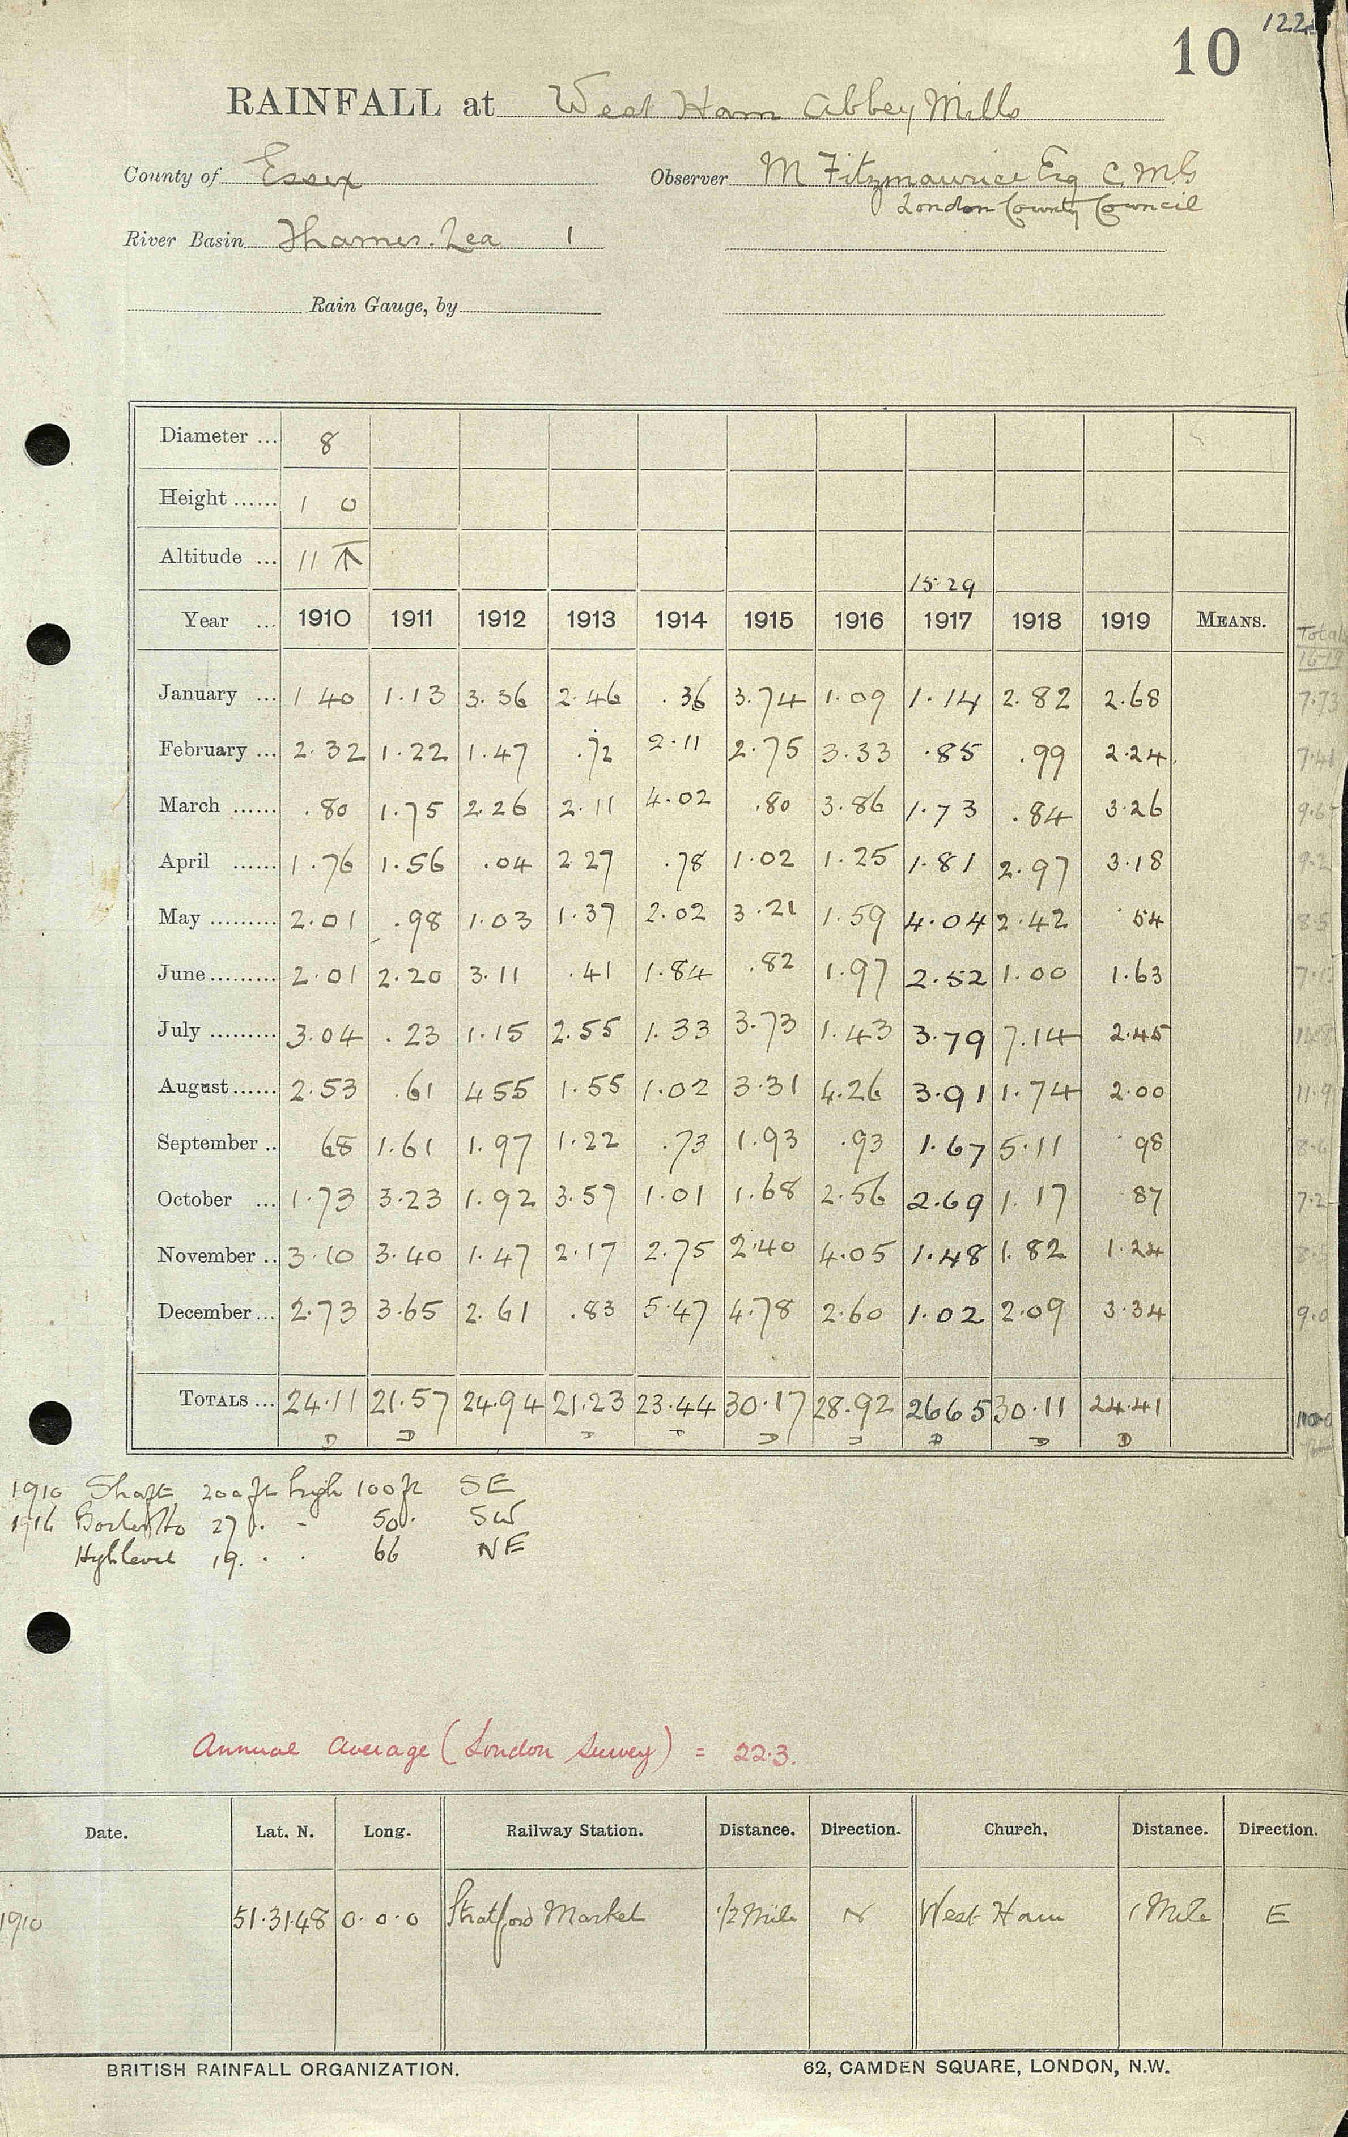 10
RAINFALL at West Ham Abbey Mills
County of Essex Observer M Fitzmaurice Esq C.M.G
London County Council
River Basin Thames. Lea 1
Rain Gauge, by
Diameter ... 8
Height ...... 1 0
Altitude ... 11
15 29
Year ... 1910 1911 1912 1913 1914 1915 1916 1917 1918 1919 MEANS.
Total
16-19
January ... 1 40 1.13 3.36 2.46 .36 3.74 1.09 1.14 2.82 2.68 7.73
February ... 2.32 1.22 1.47 .72 2.11 2.75 3.33 .85 .99 2.24 7.41
March ...... .80 1.75 2.26 2.11 4.02 .80 3.86 1.73 .84 3.26
April ...... 1.76 1.56 .04 2 27 .78 1.02 1.25 1.81 2.97 3.18
May ......... 2.01 .98 1.03 1.37 2.02 3.21 1.59 4.04 2.42 54
June ......... 2.01 2.20 3.11 .41 1.84 .82 1.97 2.52 1.00 1.63
July ......... 3.04 .23 1.15 2.55 1.33 3.73 1.43 3.79 7.14 2.45
August ...... 2.53 .61 4 55 1.55 1.02 3.31 4.26 3.91 1.74 2.00
September .. 68 1.61 1.97 1.22 .73 1.93 .93 1.67 5.11 98
October ... 1.73 3.23 1.92 3.57 1.01 1.68 2.56 2.69 1.17 87
November .. 3.10 3.40 1.47 2.17 2.75 2.40 4.05 1.48 1.82 1.24
December ... 2.73 3.65 2.61 .83 5.47 4.78 2.60 1.02 2.09 3.34
TOTALS ... 24.11 21.57 24.94 21.23 23.44 30.17 28.92 26 65 30.11 24.41
1910 Shaft 200 ft high 100 ft SE
1916 27 50 SW
High level 19 66 NE
Annual average (London Survey) = 22.3.
Date. Lat. N. Long. Railway Station. Distance. Direction. Church. Distance. Direction.
1910 51.31.48 0.0.0 Stratford Market 1/2 Mile N West Ham 1 Mile E
BRITISH RAINFALL ORGANIZATION. 62, CAMDEN SQUARE, LONDON, N.W.